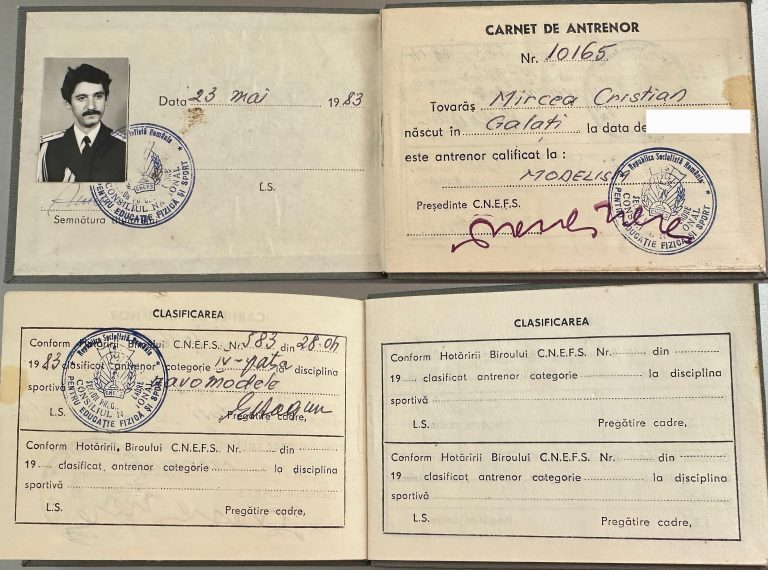 Data 23 mai 1983
L.S.
Semnătura
CARNET DE ANTRENOR
Nr. 10165
Tovarăș Mircea Cristian
născut în Galați la data de
este antrenor calificat la :
MODELISM
Președinte C.N.E.F.S.
Republica Socialistă România
CONSILIUL NAȚIONAL
PENTRU EDUCAȚIE FIZICĂ ȘI SPORT
CLASIFICAREA
Conform Hotărîrii Biroului C.N.E.F.S. Nr. 583 din 28.04.
1983 clasificat antrenor categorie IV-a la disciplina
sportivă navomodele
L.S. Pregătire cadre,
Conform Hotărîrii Biroului C.N.E.F.S. Nr. din
19 clasificat antrenor categorie la disciplina
sportivă
L.S. Pregătire cadre,
CLASIFICAREA
Conform Hotărîrii Biroului C.N.E.F.S. Nr. din
19 clasificat antrenor categorie la disciplina
sportivă
L.S. Pregătire cadre,
Conform Hotărîrii Biroului C.N.E.F.S. Nr. din
19 clasificat antrenor categorie la disciplina
sportivă
L.S. Pregătire cadre,